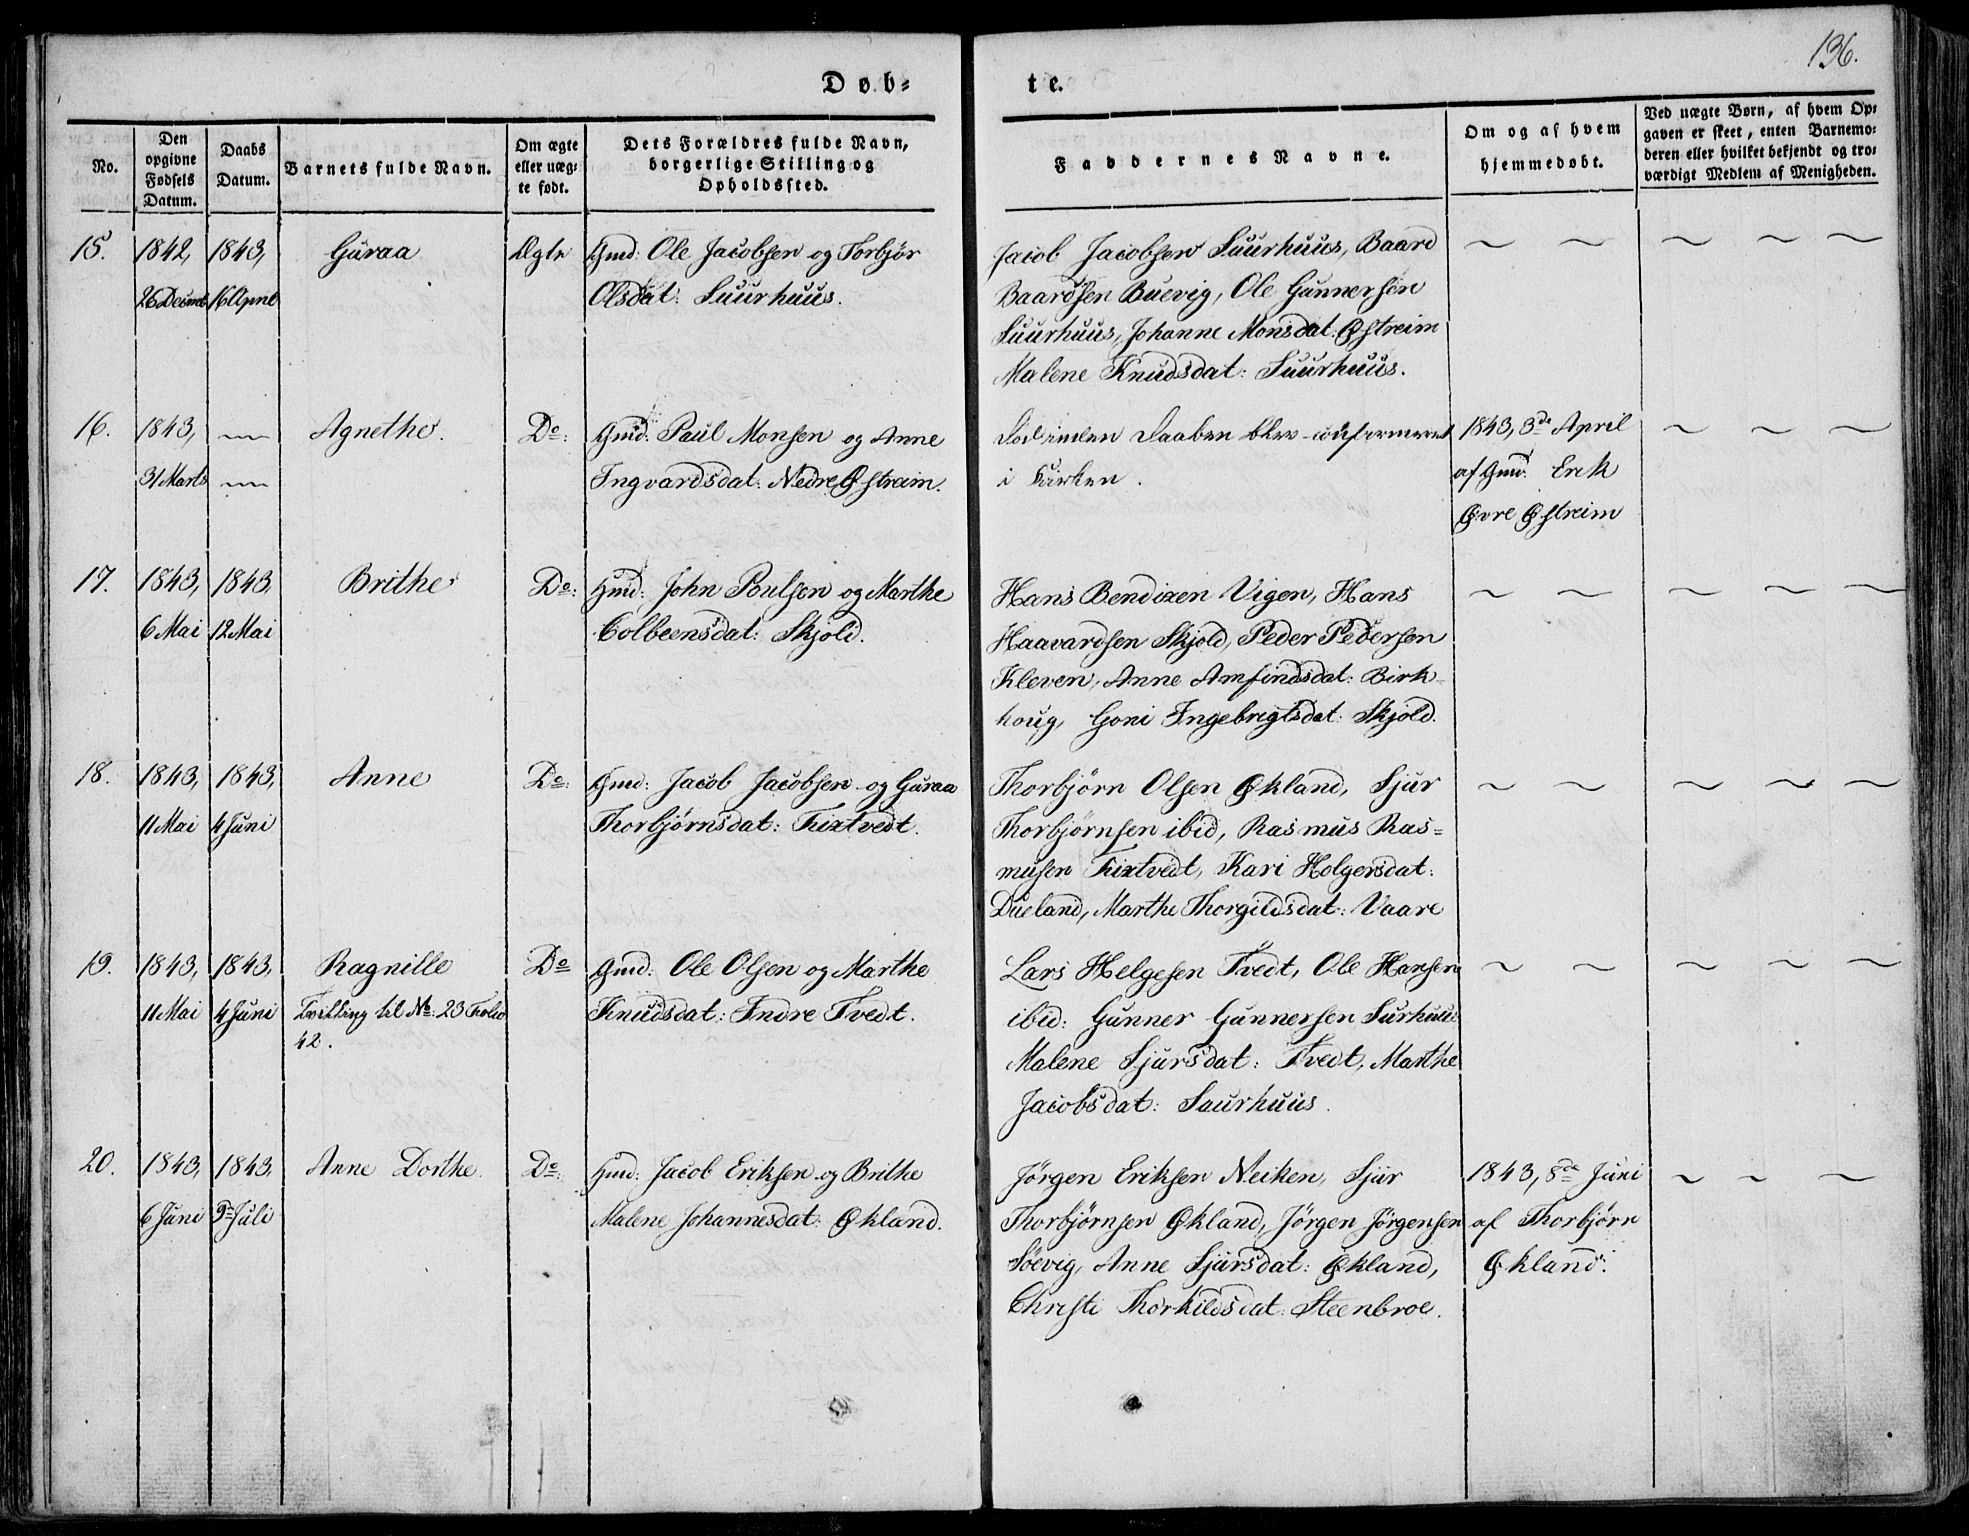 136.
Døb-
te.
No.
Den opgivne Fødsels Datum.
Daabs Datum.
Barnets fulde Navn.
Om ægte eller uæg-
te født.
Dets Forældres fulde Navn,
borgerlige Stilling og
Opholdssted.
Faddernes Navne.
Om og af hvem
hjemmedøbt.
Ved uægte Børn, af hvem Op-
gaven er skeet, enten Barnemo-
deren eller hvilket bekjendt og tro-
værdigt Medlem af Menigheden.
15. 1842, 1843, Guraa Ægte Gmd: Ole Jacobsen og Torbjør
26 Decmb 16 April Olsdat: Suurhuus.
Jacob Jacobsen Suurhuus, Baard
Baardsen Buevig, Ole Gunnersen
Suurhuus, Johanne Monsdat: Østreim
Malene Knudsdat: Suurhuus.
16. 1843, Agnethe. Do: Gmd: Paul Monsen og Anne
31 Marts Ingvardsdat: Nedre Østreim.
Død inden Daaben blev confirmeret
i Kirken.
1843, 3de April
af Gmd. Erik
Øvre Østreim
17. 1843, 1843, Brithe Do: Gmd: John Poulsen og Marthe
6 Mai 12 Mai Colbeensdat: Skjold.
Hans Bendixen Vigen, Hans
Haavardsen Skjold, Peder Pedersen
Kleven, Anne Amfindsdat: Birk-
houg, Goni Ingebrigtsdat: Skjold.
18. 1843, 1843, Anne Do: Gmd: Jacob Jacobsen og Guraa
11 Mai 4 Juni Thorbjørnsdat: Tixtvedt.
Thorbjörn Olsen Økland, Sjur
Thorbjörnsen ibid, Rasmus Ras=
musen Tixtvedt, Kari Holgersdat:
Dueland, Marthe Thorgildsdat: Vaare
19. 1843, 1843, Ragnille Do Gmd: Ole Olsen og Marthe
11 Mai 4 Juni Tvilling til No: 23 Folio Knudsdat: Indre Tvedt.
42.
Lars Helgesen Tvedt, Ole Hansen
ibid: Gunner Gunnersen Surhuus
Malene Sjursdat: Tvedt, Marthe
Jacobsdat: Saurhuus.
20. 1843, 1843, Anne Dorthe Do: Gmd: Jacob Eriksen og Brithe
6 Juni 9de Juli Malene Johannesdat: Økland.
Jörgen Eriksen Neiken, Sjur
Thorbjörnsen Økland, Jörgen Jörgensen
Söevig, Anne Sjursdat: Økland,
Christi Thorkildsdat: Steenbroe.
1843, 8de Juni
af Thorbjörn
Økland.